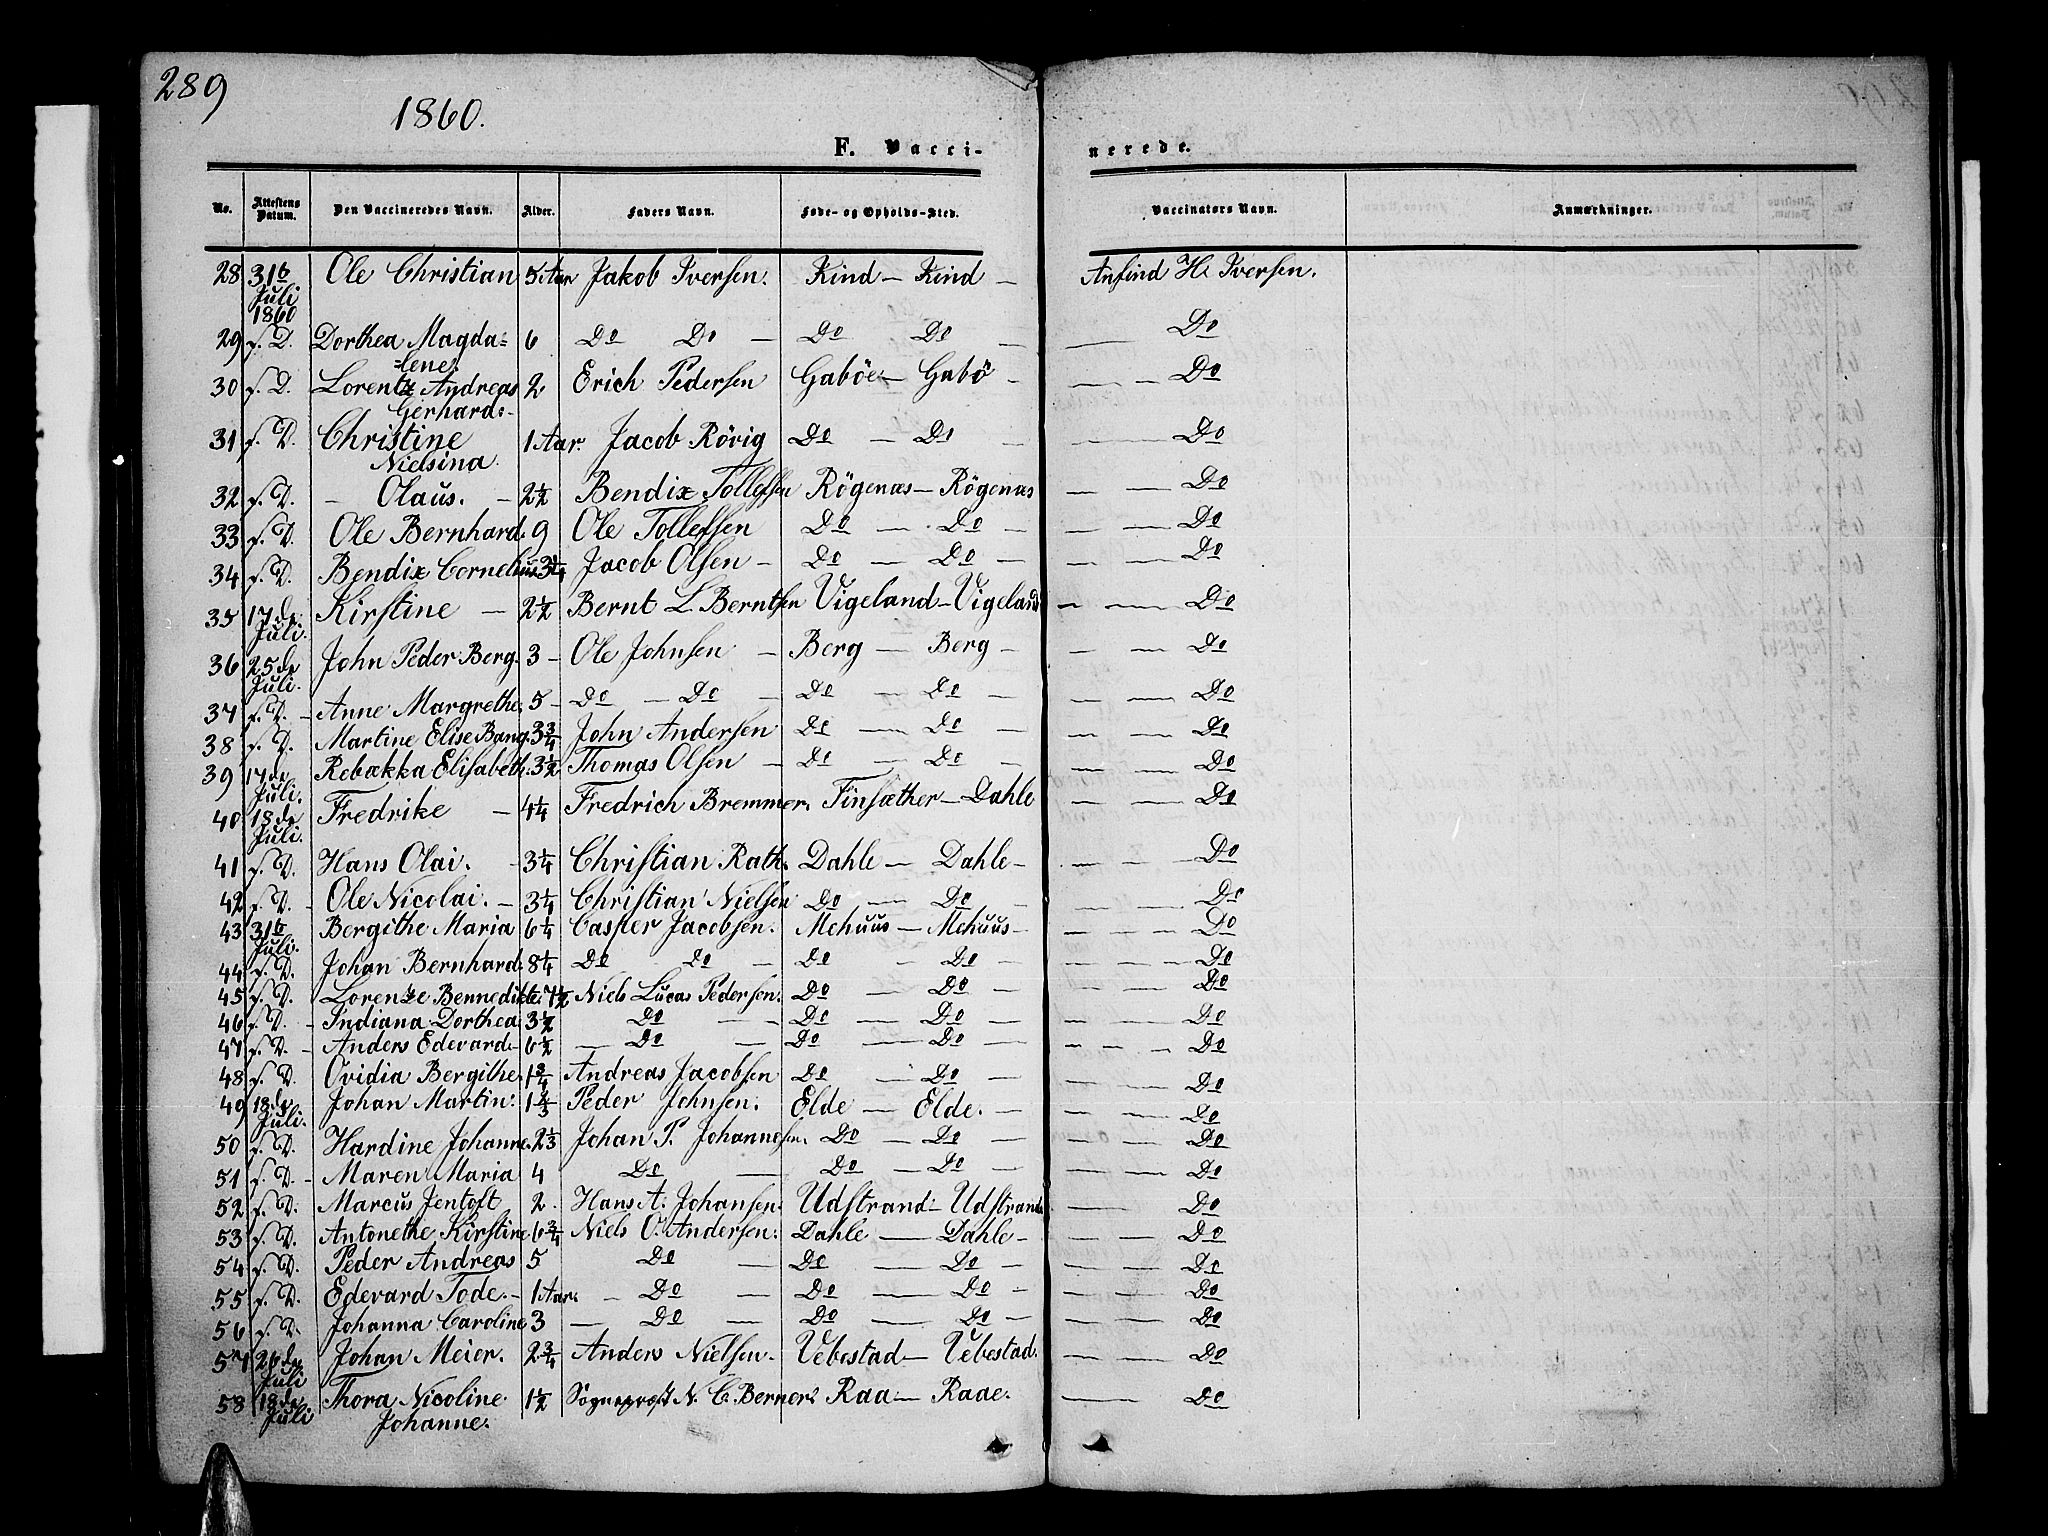 289
1860.
F. Vaccinerede.
No. Attestens Datum. Den Vaccineredes Navn. Alder. Faders Navn. Føde- og Opholds-Sted. Vaccinators Navn. Anmærkninger.
28 31te Juli 1860 Ole Christian 5 Aar Jakob Iversen. Kind — Kind — Anfind H. Iversen.
29 s. D. Dorthea Magda= 6 Do Do — Do Do — Do
=lene.
30 s. D. Lorentz Andreas 2 Erich Pedersen Gaböe — Gabö — Do
Gerhard:-
31 s. D. Christine 1 Aar. Jacob Rövig Do — Do — Do
Nielsina.
32 s. D. — Olaus. — 2½ Bendix Tollefsen Rögenæs — Rögenæs — Do
33 s. D. Ole Bernhard. 9 Ole Tollefsen Do — Do — Do
34 s. D. Bendix Cornelius 3¼ Jacob Olsen — Do — Do — Do
35 17de Juli. Kirstine — 2½ Bernt L. Berntsen Vigeland — Vigeland — Do
36 25de Juli. John Peder Berg. 3 — Ole Johnsen — Berg — Berg — Do
37 s. D. — Anne Margrethe. 5 — Do — Do — Do — Do — Do
38 s. D. Martine Elise Bang. 3¾ John Andersen Do — Do — Do
39 17de Juli. Rebækka Elisabeth. 3½ Thomas Olsen — Do — Do — Do
40 18de Juli. Fredrike — 4¼ Fredrich Bremmer. Finsæther — Dahle — Do
41 s. D. Hans Olai. — 3¼ Christian Rath. Dahle — Dahle — Do
42 s. D. — Ole Nicolai. — 3¼ Christian Nielsen Do — Do — Do
43 31te Juli. Bergithe Maria 6¼ Casper Jacobsen. Mehuus — Mehuus — Do
44 s. D. Johan Bernhard. 8¼ Do Do — Do — Do — Do
45 s. D. Lorentze Bennedikte. 7½ Niels Lucas Pedersen. Do — Do — Do
46 s. D. — Indiana Dorthea 3½ Do — Do — Do — Do
47 s. D. — Anders Edevard — 6½ — Do — Do — Do — Do
48 s. D. Ovidia Bergithe. 1¾ Andreas Jacobsen Do — Do — Do
49 18de Juli. Johan Martin. 1⅔ Peder Johnsen. Elde — Elde. — Do
50 s. D. Hardine Johanne. 2⅓ Johan P. Johannesen. Do — Do — Do
51 s. D. — Maren Maria 4 Do — Do — Do — Do
52 s. D. Marcus Jentoft 2. Hans A. Johansen. Udstrand — Udstrand — Do
53 s. D. Antonethe Kirstine 6¾ Niels O. Andersen. Dahle — Dahle — Do
54 s. D. Peder Andreas 5 Do — Do — Do — Do
55 s. D. Edevard Tode. — 1 Aar. — Do — Do — Do — Do
56 s. D. Johanna Caroline 3 — Do — Do — Do — Do
57 26de Juli Johan Meier. 2¾ Anders Nielsen. Vebestad — Vebestad. — Do
58 18de Juli Thora Nicoline 1½ Sogneprest N. C. Berner: Raa — Raae. — Do
Johanne.